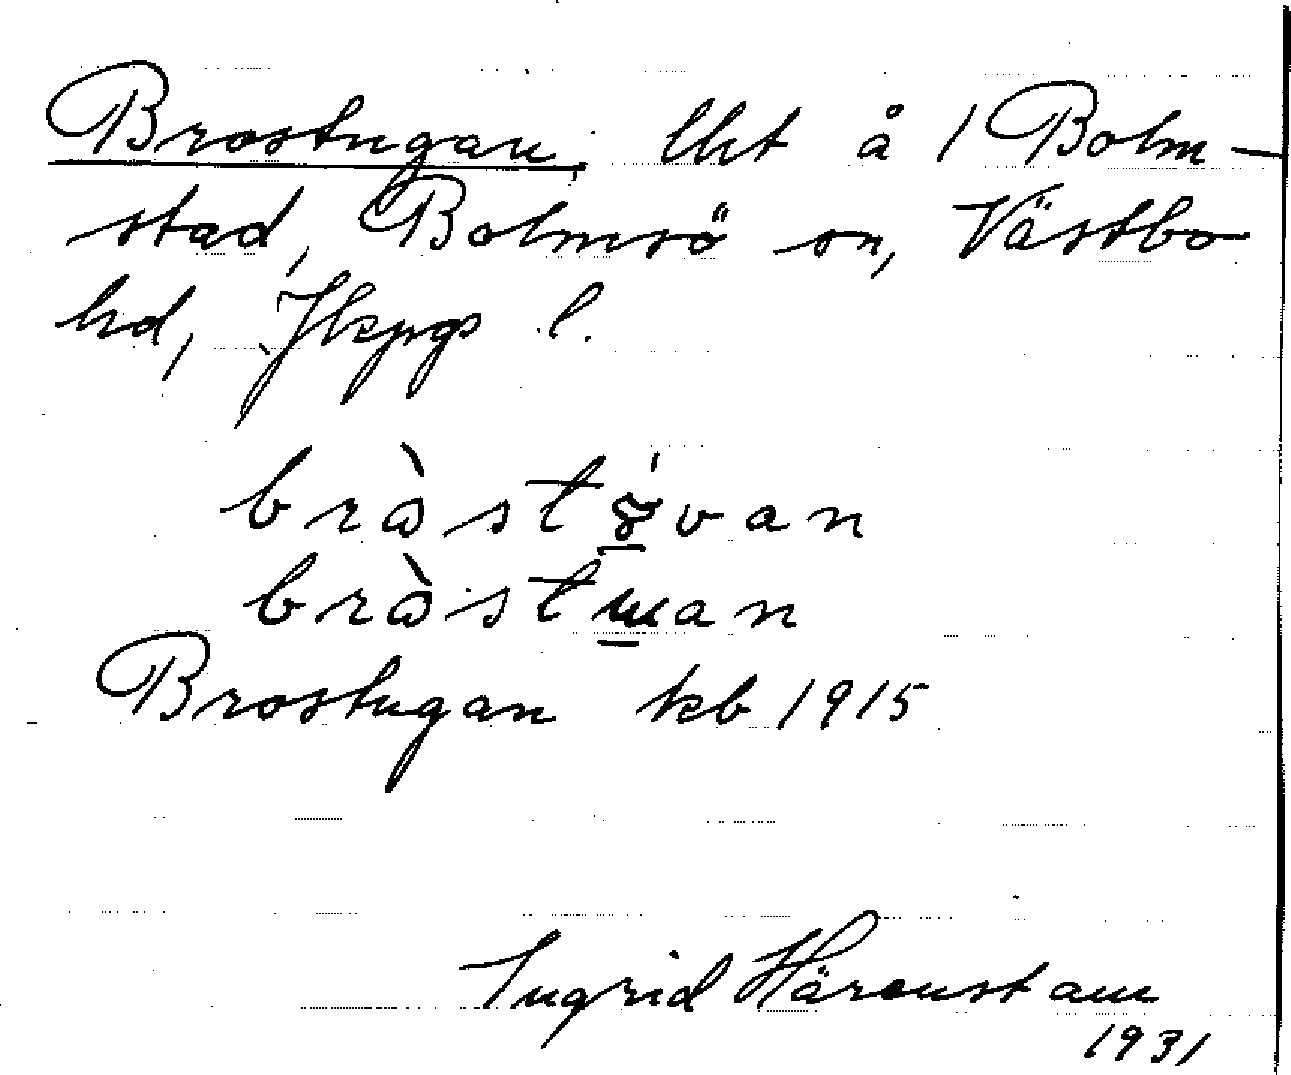 Brostugan, lht å 1 Bolm-
stad, Bolmsö sn, Västbo
hd, Jkpgs l.
Brostugan kb 1915
Ingrid Härenstam
1931